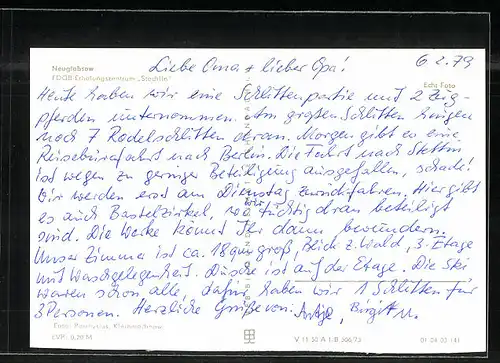 Neuglobsow
FDGB-Erholungszentrum „Stechlin“
Liebe Oma + lieber Opa!
6 2.79
Echt Foto
Heute haben wir eine Schlittenpartie mit 2 Zug-
pferden unternommen. Am großen Schlitten hingen
noch 7 Rodelschlitten daran. Morgen gibt es eine
Reisebürofahrt nach Berlin. Die Fahrt nach Stettin
ist wegen zu geringer Beteiligung ausgefallen, schade!
Wir werden erst am Dienstag zurückfahren. Hier gibt
es auch Bastelzirkel, wo wir tüchtig dran beteiligt
sind. Die Werke könnt Ihr dann bewundern.
Unser Zimmer ist ca. 18 qm groß, Blick z. Wald, 3. Etage
mit Waschgelegenheit. Dusche ist auf der Etage. Die Ski
waren schon alle, dafür haben wir 1 Schlitten für
3 Personen. Herzliche Grüße von Birgit
EVP: 0,20 M
V 11 50 A 1/B 306/73
01 04 03 141